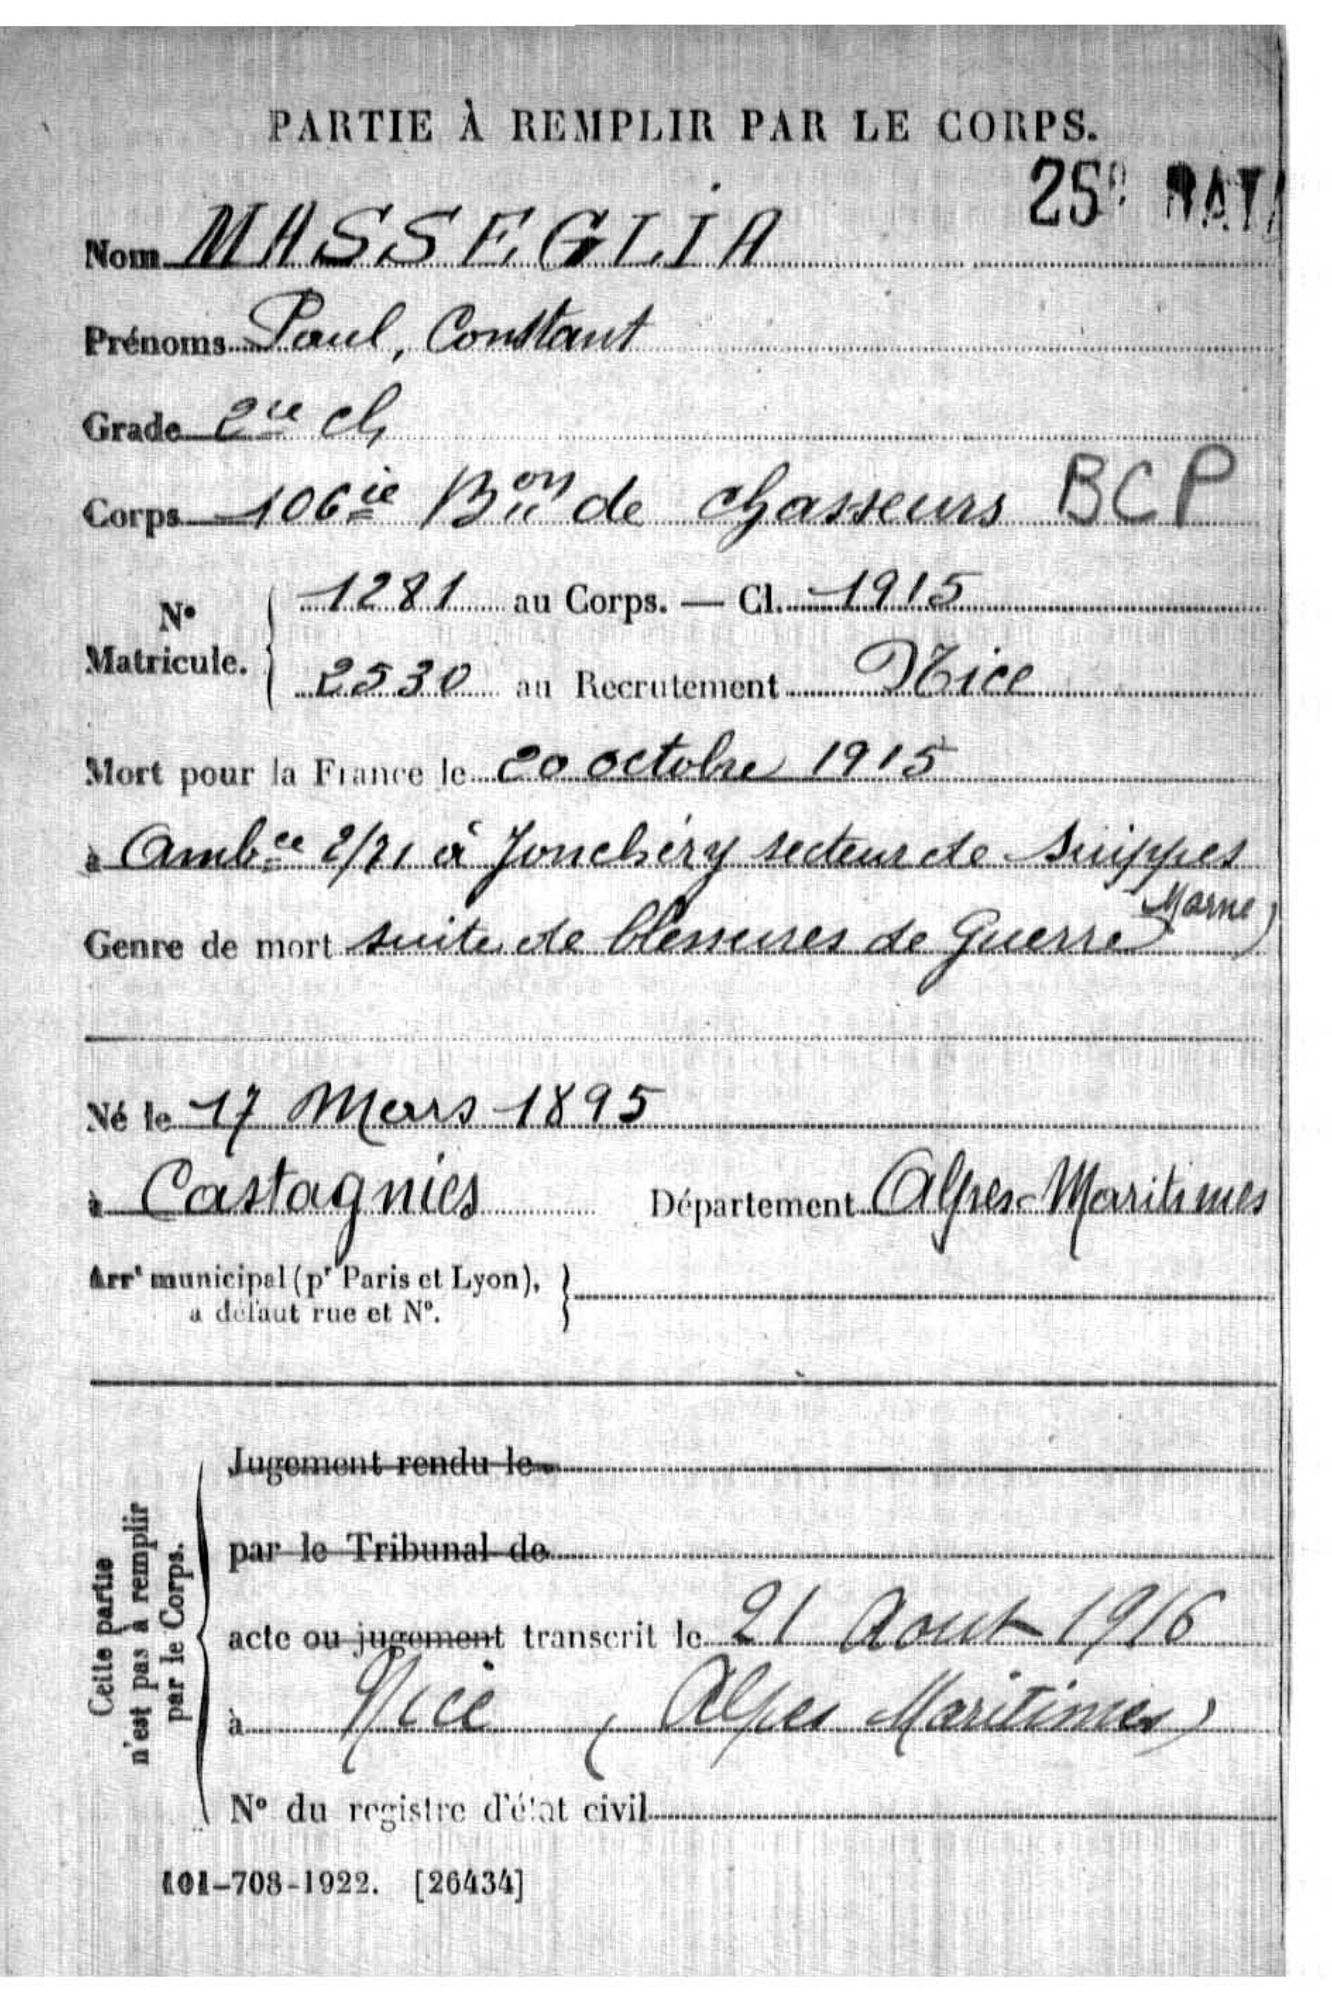 PARTIE À REMPLIR PAR LE CORPS.
25e BATA
Nom MASSEGLIA
Prénoms Paul, Constant
Grade 2ie cl
Corps 106ie Bon de chasseurs BCP
No Matricule. 1281 au Corps. — Cl. 1915
2530 au Recrutement Nice
Mort pour la France le 20 octobre 1915
à Ambce 2/21 à Jonchéry secteur de Suippes
Marne)
Genre de mort suite de blessures de Guerre
Né le 17 Mars 1895
à Castagnies Département Alpes-Maritimes
Arrt municipal (pr Paris et Lyon),
à défaut rue et No.
Jugement rendu le
par le Tribunal de
acte ou jugement transcrit le 21 Aout 1916
à Nice (Alpes Maritimes)
No du registre d'état civil
Cette partie
n'est pas à remplir
par le Corps.
101-708-1922. [26434]